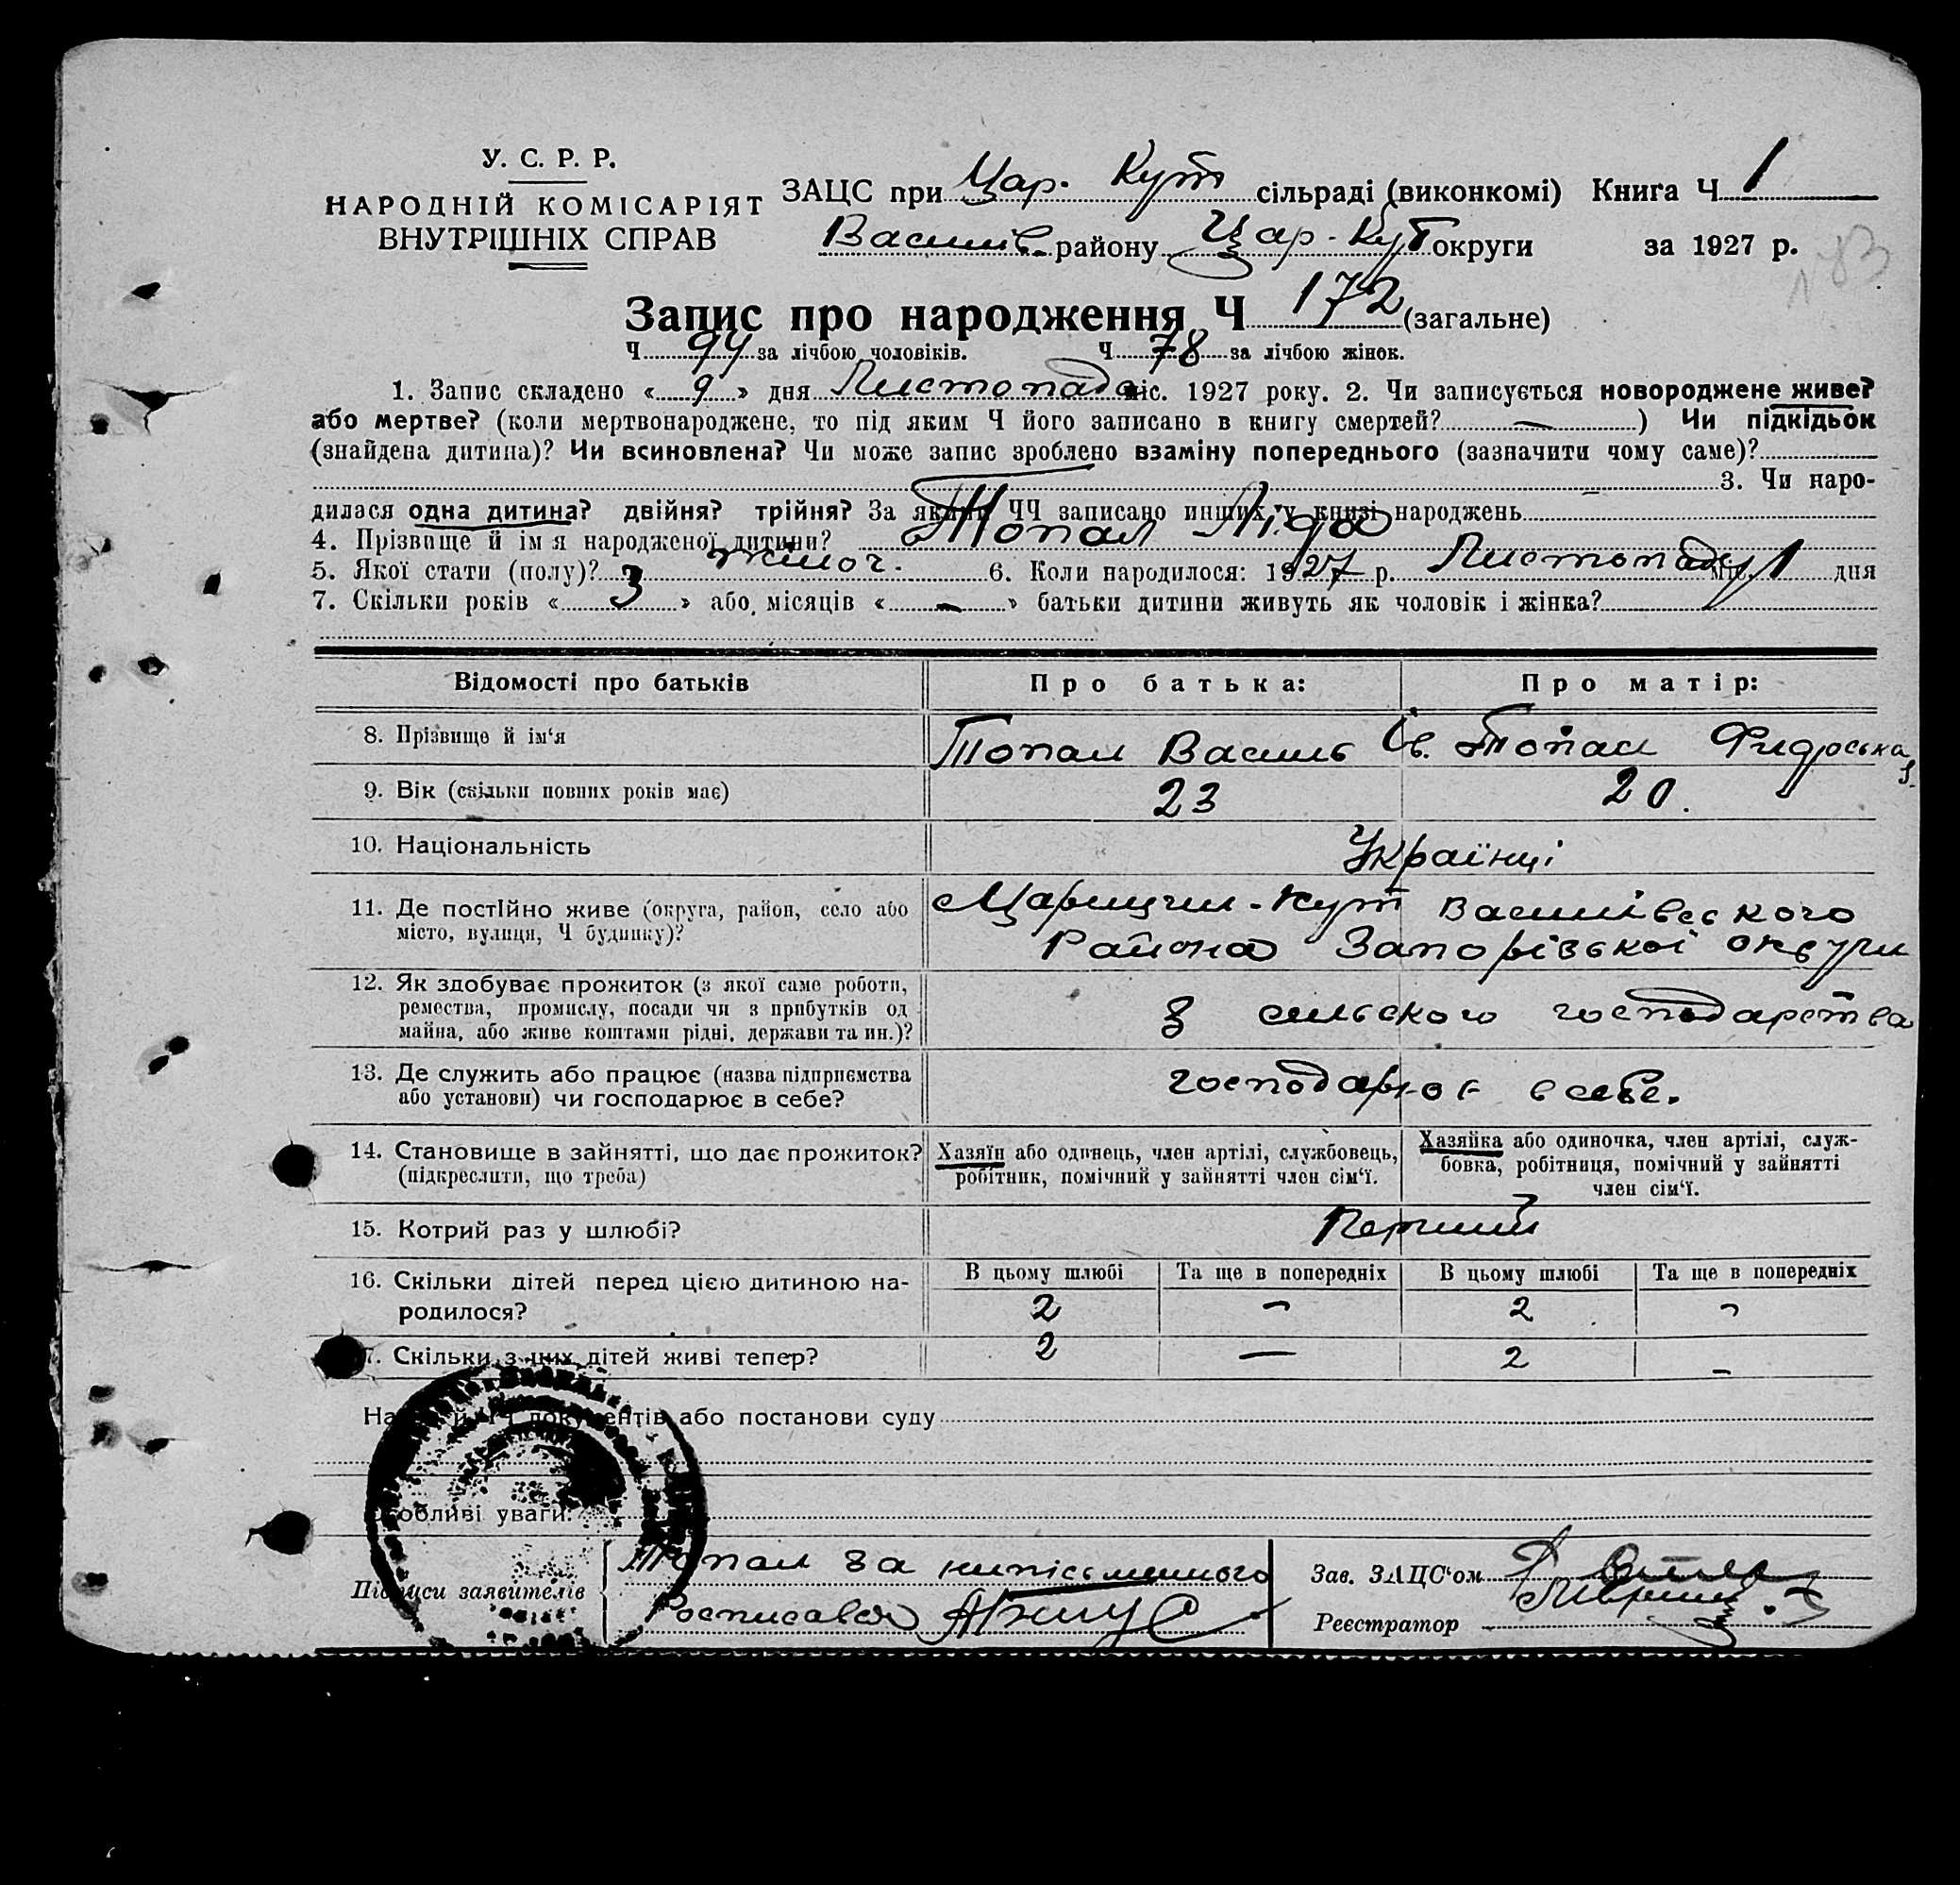 У. С. Р. Р.
НАРОДНІЙ КОМІСАРІЯТ
ВНУТРІШНІХ СПРАВ
ЗАЦС при Цар. Кут сільраді (виконкомі) Книга Ч 1
Василів. району Цар-Кут округи за 1927 р.
183
Запис про народження Ч 172 (загальне)
Ч 94 за лічбою чоловіків. Ч 78 за лічбою жінок.
1. Запис складено «9» дня Листопада міс. 1927 року. 2. Чи записується новороджене живе?
або мертве? (коли мертвонароджене, то під яким Ч його записано в книгу смертей? — ) Чи підкідьок
(знайдена дитина)? Чи всиновлена? Чи може запис зроблено взаміну попереднього (зазначити чому саме)?
3. Чи наро-
дилася одна дитина? двійня? трійня? За якими ЧЧ записано инших у книзі народжень
4. Прізвище й ім я народженої дитини? Топал Ліда
5. Якої стати (полу)? жіноч. 6. Коли народилося: 1927 р. Листопаду міс. 1 дня
7. Скільки років «3» або місяців «—» батьки дитини живуть як чоловік і жінка?
Відомості про батьків Про батька: Про матір:
8. Прізвище й ім‘я Топал Василь Ів. Топал
9. Вік (скільки повних років має) 23 20.
10. Національність Українці
11. Де постІйно живе (округа, район, село або
місто, вулиця, Ч будинку)?
Царицин-Кут Василівського
Района Запорізької округи
12. Як здобуває прожиток (з якої саме роботи,
ремества, промислу, посади чи з прибутків од
майна, або живе коштами рідні, держави та ин.)?
З сильского господарства
13. Де служить або працює (назва підприємства
або установи) чи господарює в себе?
господарюют в себе.
14. Становище в зайнятті, що дає прожиток?
(підкреслити, що треба)
Хазяїн або одинець, член артілі, службовець,
робітник, помічний у зайнятті член сім‘ї.
Хазяйка або одиночка, член артілі, служ-
бовка, робітниця, помічний у зайнятті
член сім‘ї.
15. Котрий раз у шлюбі? Перший
16. Скільки дітей перед цією дитиною на-
родилося?
В цьому шлюбі Та ще в попередніх В цьому шлюбі Та ще в попередніх
2 — 2 —
7. Скільки з них дітей живі тепер? 2 — 2 —
На й ЧЧ документів або постанови суду
обливі уваги:
Підписи заявителів
Топал за нипісьминного
Росписався
Зав. ЗАЦС‘ом
Реєстратор